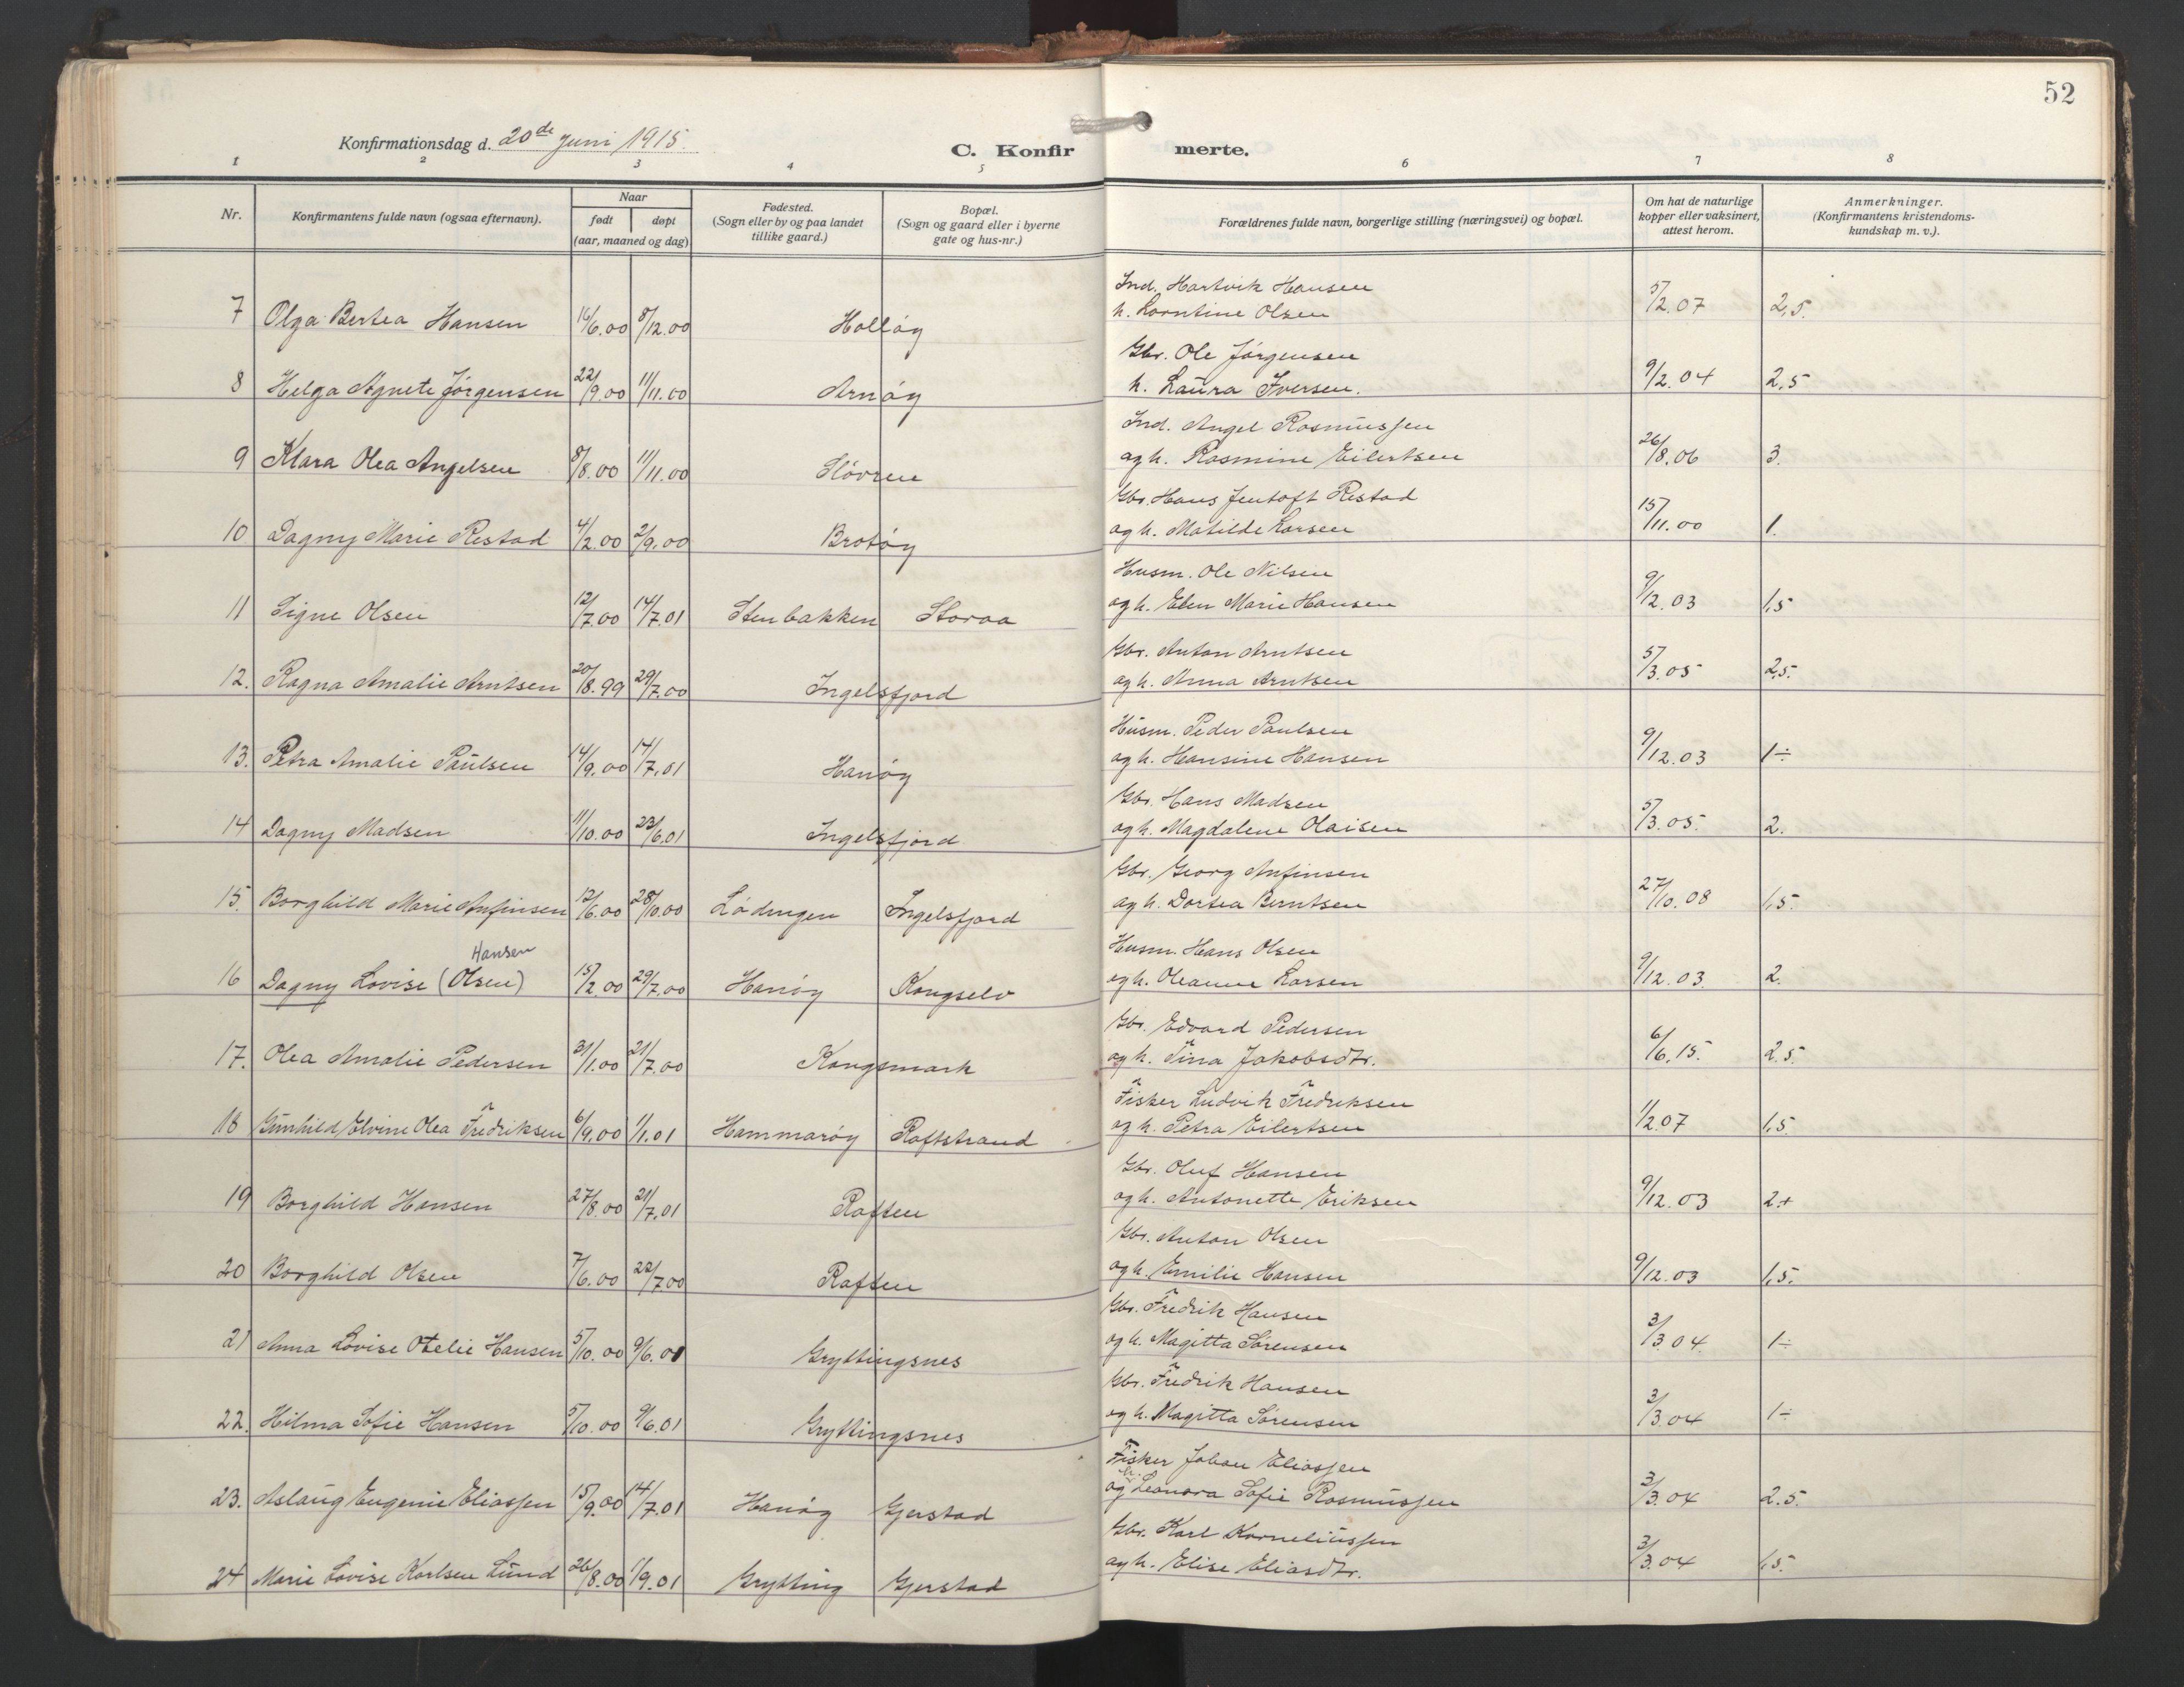 52
Konfirmationsdag d. 20de juni 1915.
C. Konfirmerte.
1 2 3 4 5 6 7 8
Nr. Konfirmantens fulde navn (ogsaa efternavn). Naar født døpt (aar, maaned og dag) Fødested. (Sogn eller by og paa landet tillike gaard.) Bopæl. (Sogn og gaard eller i byerne gate og hus-nr.) Forældrenes fulde navn, borgerlige stilling (næringsvei) og bopæl. Om hat de naturlige kopper eller vaksinert, attest herom. Anmerkninger. (Konfirmantens kristendomskundskap m. v.).
Ind. Hartvik Hansen
7 Olga Bertea Hansen 16/6.00 8/12.00 Holløy h. Lorntine Olsen 5/2.07 2,5.
Gbr. Ole Jørgensen
8 Helga Agnete Jørgensen 22/9.00 11/11.00 Arnøy h. Laura Iversen. 9/2.04 2,5
Ind. Angel Rasmussen
9 Klara Olea Angelsen 8/8.00 11/11.00 Støvren og h. Rasmine Eilertsen 26/8.06 3.
Gbr. Hans Jentoft Restad
10 Dagny Marie Restad 4/2.00 2/9.00 Brotøy og h. Matilde Larsen 15/11.00 1.
Husm. Ole Nilsen
11 Signe Olsen 12/7.00 14/7.01 Stenbakken Storaa og h. Elen Marie Hansen 9/12.03 1,5
Gbr. Anton Arntsen
12. Ragna Amalie Arntsen 20/8.99 29/7.00 Ingelsfjord og h. Anna Arntsen 5/3.05 2,5.
Husm. Peder Paulsen
13. Petra Amalie Paulsen 14/9.00 14/7.01 Hanøy og h. Hansine Hansen 9/12.03 1÷
Gbr. Hans Madsen
14 Dagny Madsen 11/10.00 23/6.01 Ingelsfjord og h. Magdalene Olaisen 5/3.05. 2.
Gbr. Georg Anfinsen
15. Borghild Marie Anfinsen 12/6.00 28/10.00 Lødingen Ingelsfjord og h. Dortea Berntsen 27/10.08 1,5.
Hansen Husm. Hans Olsen
16 Dagny Lovise (Olsen) 15/2.00 29/7.00 Hanøy Kongselv og h. Oleanne Larsen 9/12.03. 2.
Gbr. Edvard Pedersen
17. Olea Amalie Pedersen 31/1.00 21/7.00 Kongsmark og h. Tina Jakobsdtr. 6/6.15. 2.5.
Fisker Ludvik Fredriksen
18 Gunhild Elvine Olea Fredriksen 6/9.00 1/1.01 Hammarøy Raftstrand og h. Petra Eilertsen 1/2.07 1,5.
Gbr. Oluf Hansen
19 Borghild Hansen 27/8.00 21/7.01 Raften og h. Antonette Eriksen 9/12.03 2+
Gbr. Anton Olsen
20 Borghild Olsen 7/6.00 22/7.00 Raften og h. Emilie Hansen 9/12.03 1,5.
Gbr. Fredrik Hansen
21 Anna Lovise Otelie Hansen 5/10.00 9/6.01 Gryttingsnes og h. Magitta Sørensen 3/3.04. 1÷
Gbr. Fredrik Hansen
22. Hilma Sofie Hansen 5/10.00 9/6.01 Gryttingsnes og h. Magitta Sørensen 3/3.04 1÷
Fisker Johan Eliassen
23. Aslaug Eugenie Eliassen 15/9.00 14/7.01 Hanøy Gjerstad og h. Leonora Sofie Rasmussen 3/3.04 2.5.
Gbr. Karl Korneliussen
24 Marie Lovise Karlsen Lund 26/8.00 1/9.01 Grytting Gjerstad og h. Elise Eliasdtr. 3/3.04 1,5.